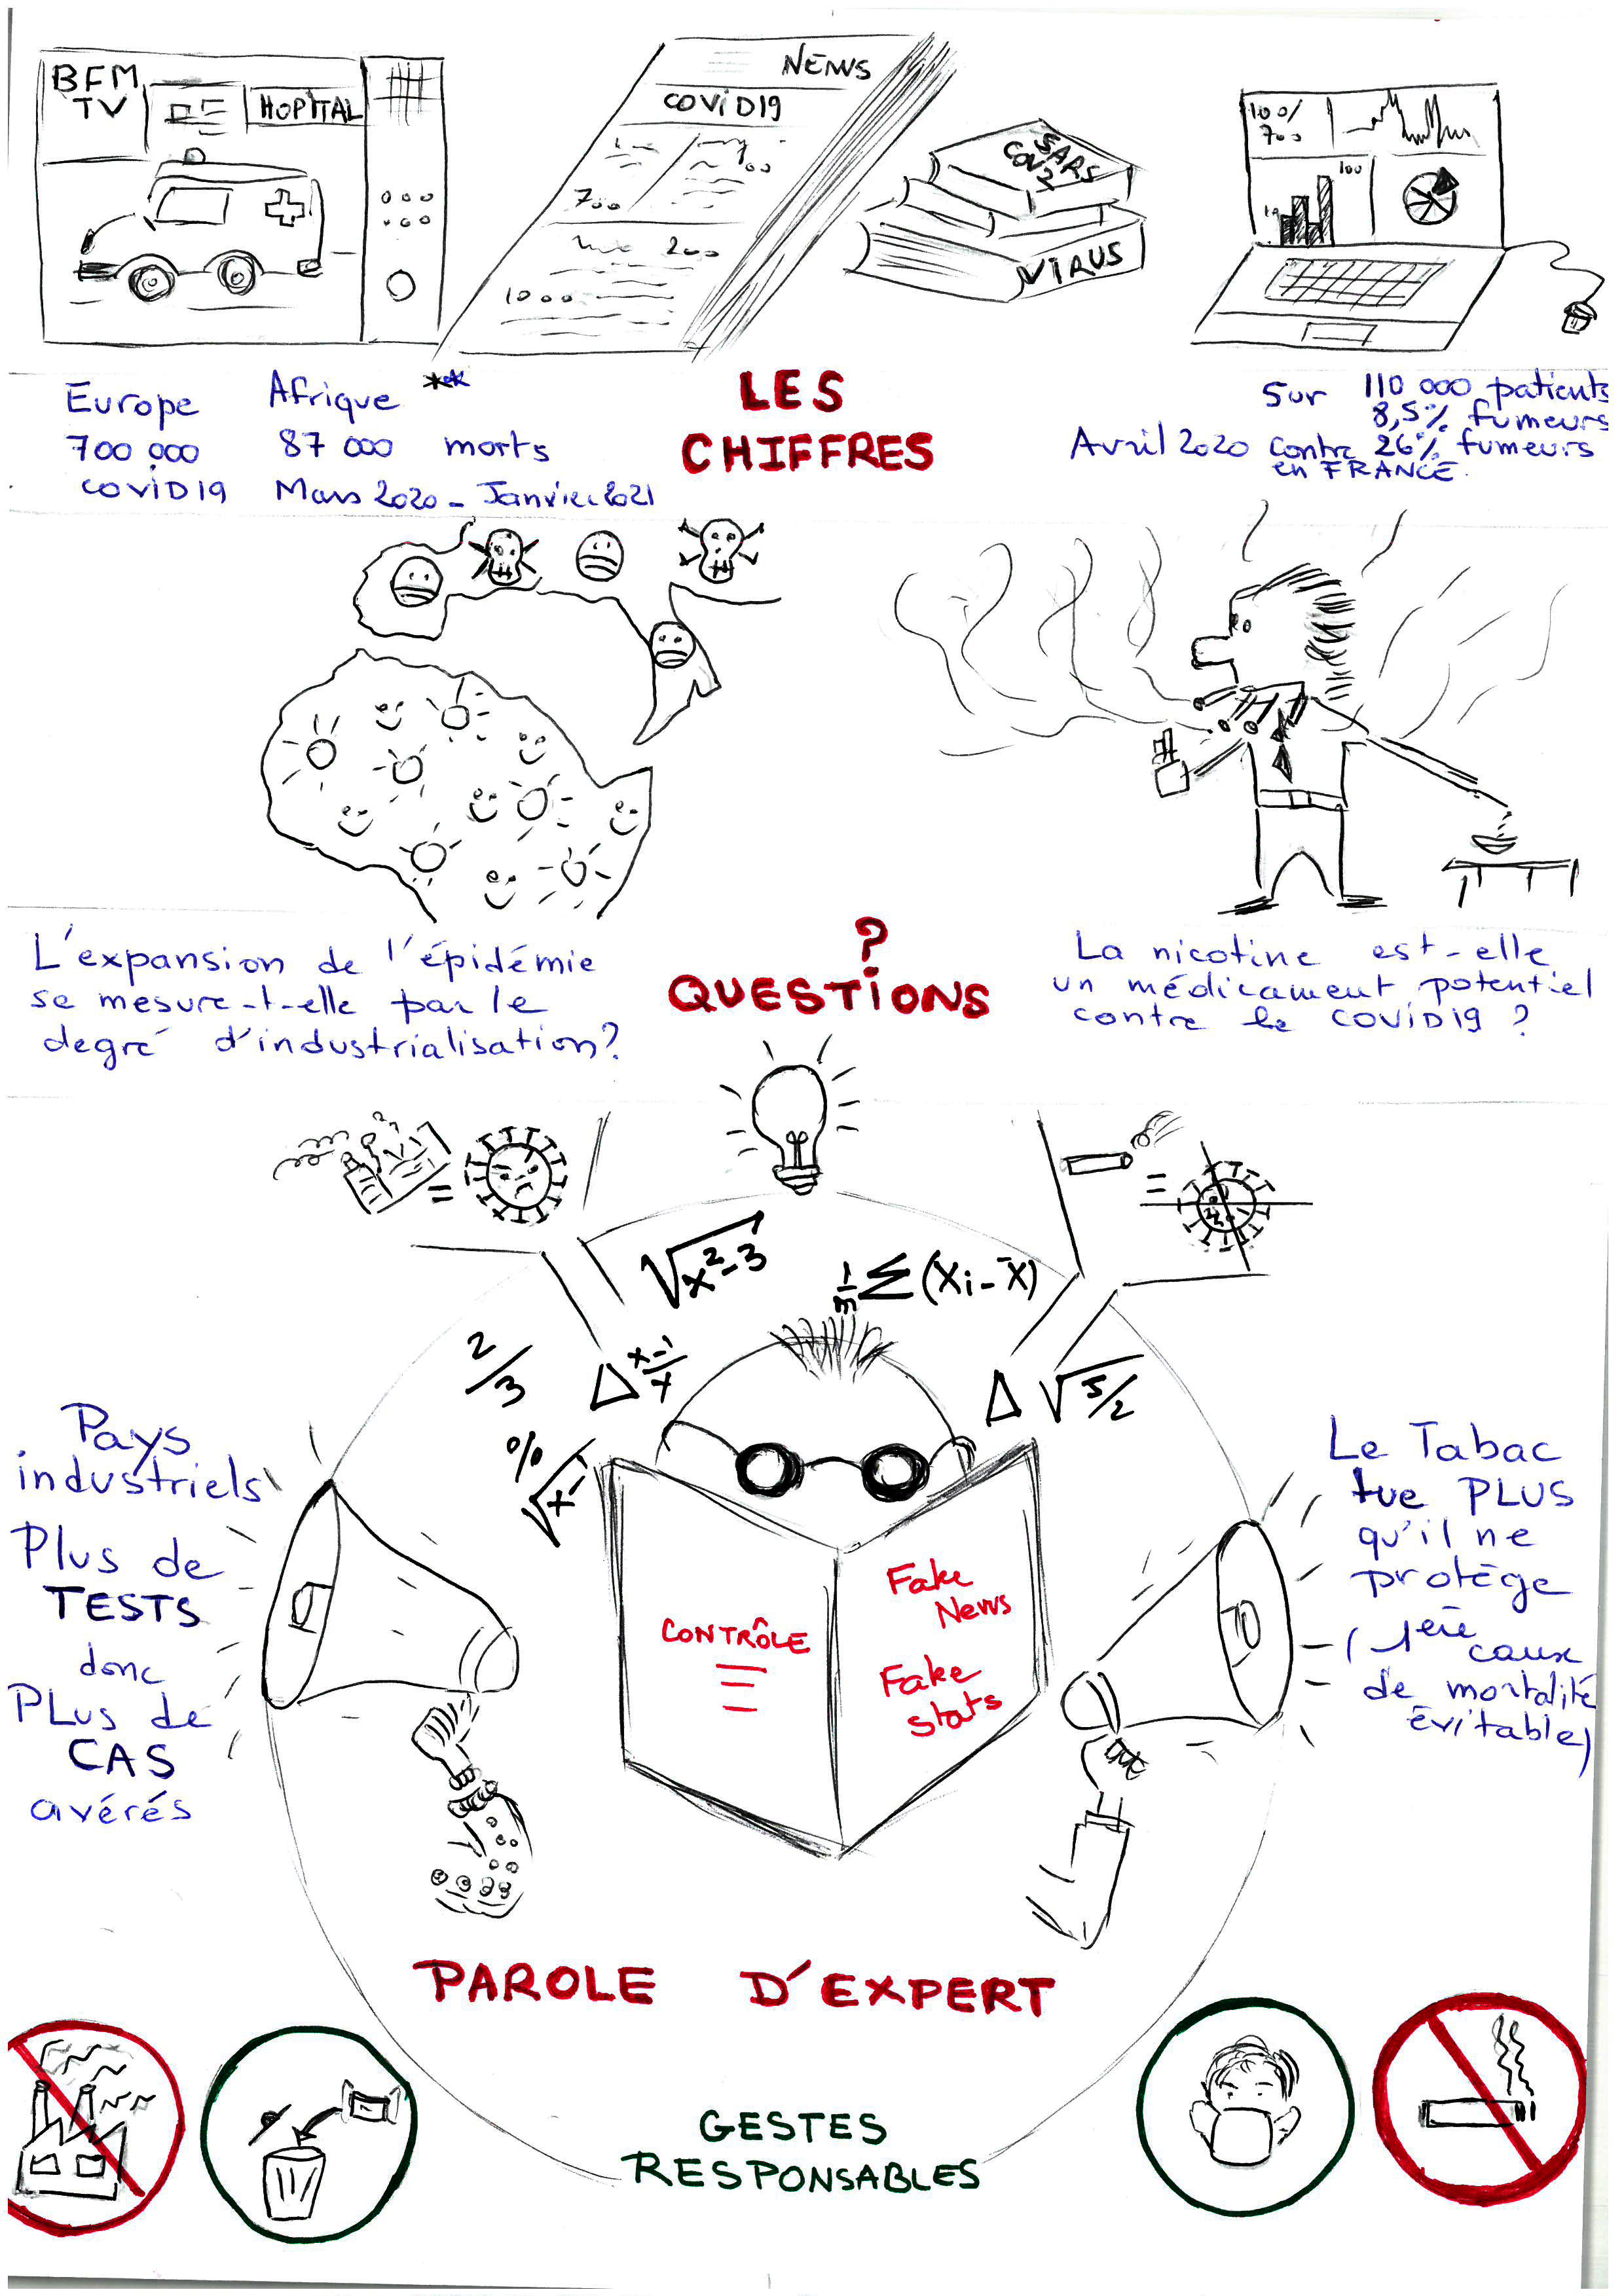 BFM
TV
HOPITAL
NEWS
COVID19
700
200
1000
SARS
COV2
VIRUS
100/
700
100
Europe
700 000
COVID19
Afrique **
87 000 morts
Mars 2020 - Janvier 2021
LES
CHIFFRES
Sur 110 000 patients
8,5% fumeurs
Avril 2020 contre 26% fumeurs
en FRANCE.
L'expansion de l'épidémie
se mesure-t-elle par le
degré d'industrialisation?
?
QUESTIONS
La nicotine est-elle
un médicament potentiel
contre le COVID19 ?
=
=
√x²-3
1/m Σ (Xi - X̄)
2/3
Δ
Δ √5/2
%
Pays
industriels
Plus de
TESTS
donc
PLUS de
CAS
avérés
CONTRÔLE
Fake
News
Fake
stats
Le Tabac
tue PLUS
qu'il ne
protège
(1ère caux
de mortalité
évitable)
PAROLE D'EXPERT
GESTES
RESPONSABLES